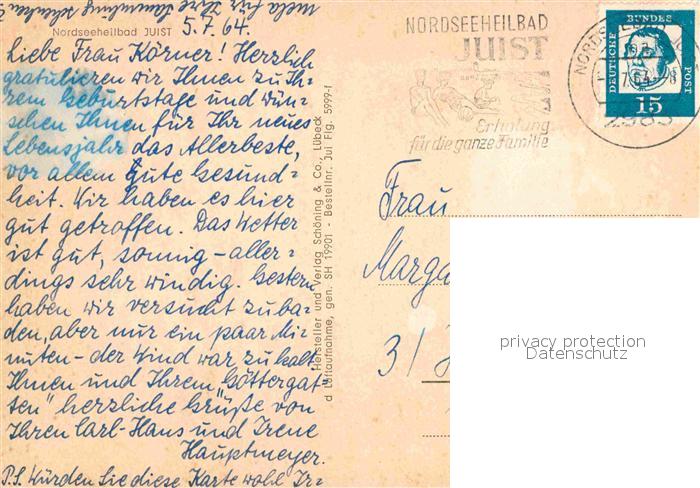 mela für Ihre Sammlung schenken?
Nordseeheilbad JUIST
5.7.64.
Liebe Frau Körner! Herzlich
gratulieren wir Ihnen zu Ih-
rem Geburtstage und wün-
schen Ihnen für Ihr neues
Lebensjahr das Allerbeste,
vor allem gute Gesund-
heit. Wir haben es hier
gut getroffen. Das Wetter
ist gut, sonnig – aller-
dings sehr windig. Gestern
haben wir versucht zu ba-
den, aber nur ein paar Mi-
nuten – der Wind war zu kalt.
Ihnen und Ihrem "Göttergat-
ten" herzliche Grüße von
Ihren Carl-Hans und Irene
Hauptmeyer.
P.S. Würden Sie diese Karte wohl Ir-
Hersteller und Verlag Schöning & Co., Lübeck
d Luftaufnahme, gen. SH 19901 - Bestellnr. Jui Flg. 5999-f
NORDSEEHEILBAD
JUIST
Erholung
für die ganze Familie
DEUTSCHE
BUNDES
POST
15
2983
Frau
Marga
3/ H
privacy protection
Datenschutz